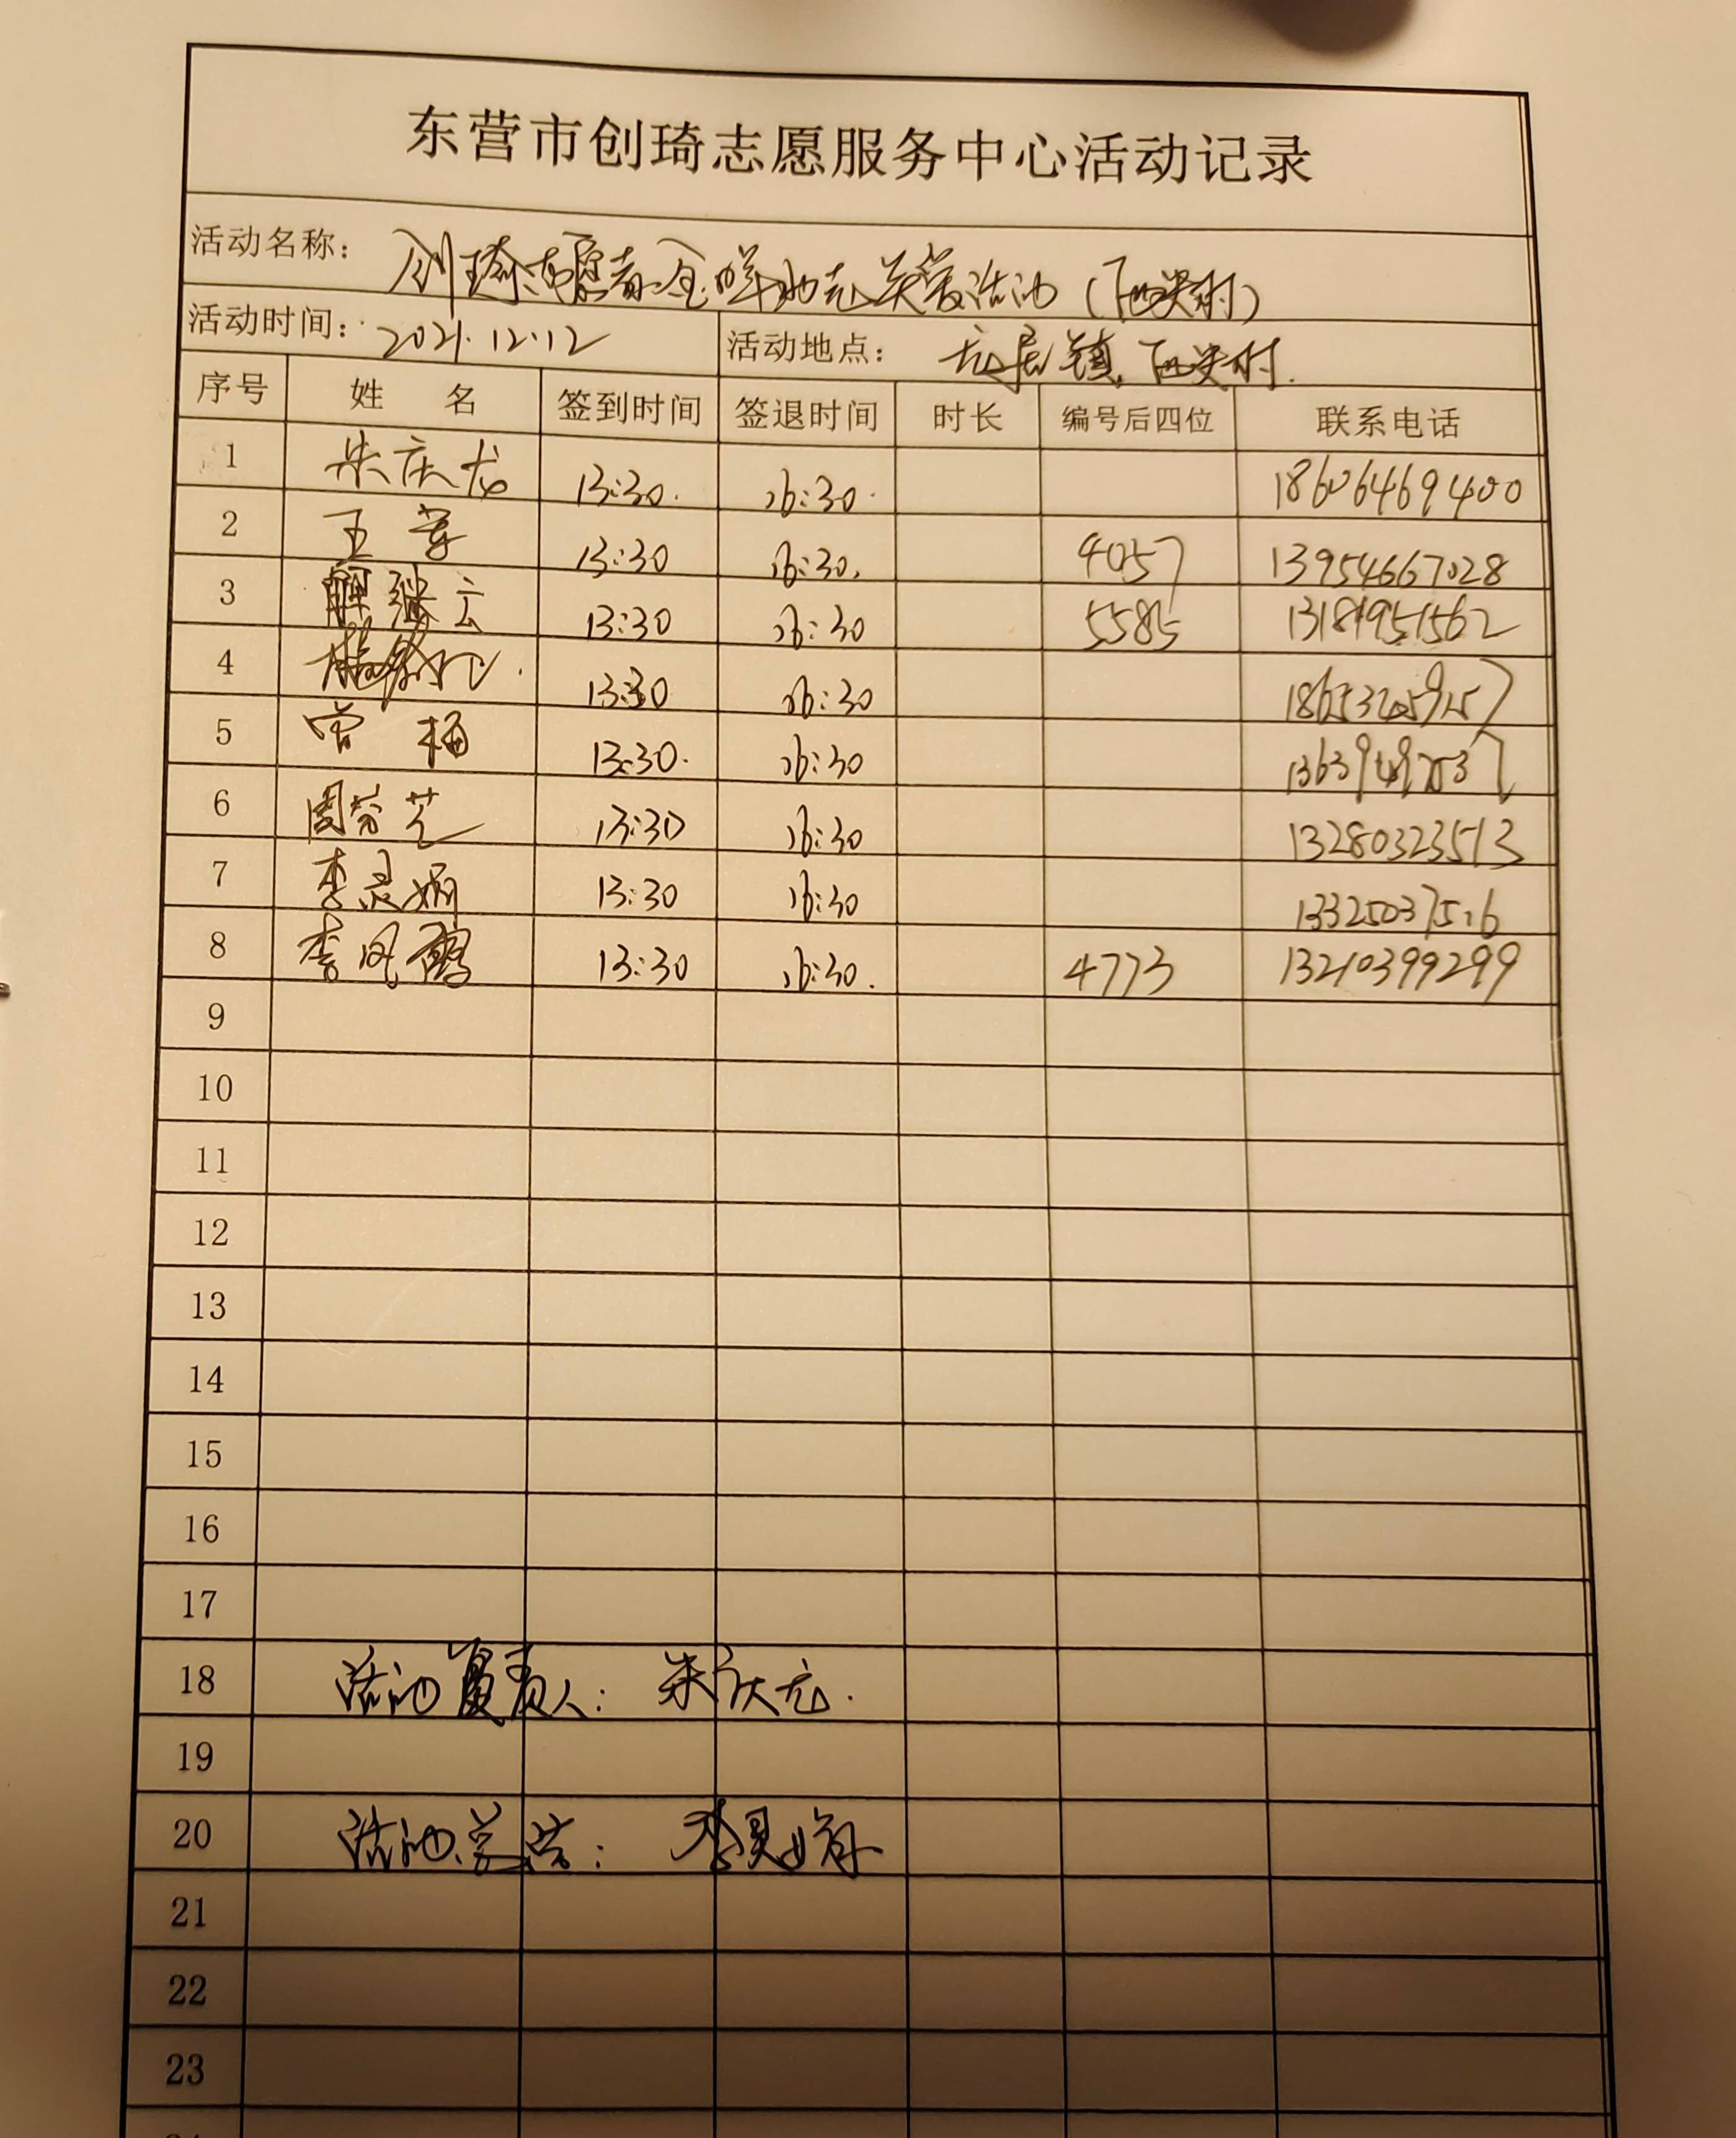 东营市创琦志愿服务中心活动记录
活动名称: 创琦志愿者 关爱活动
活动时间: 2021.12.12 活动地点: 龙居镇
序号 姓 名 签到时间 签退时间 时长 编号后四位 联系电话
1 朱庆龙 13:30. 16:30. 18606469400
2 王 13:30 16:30. 4057 13954667028
3 解继云 13:30 16:30 5585
4 13:30 16:30
5 曾 梅 13:30. 16:30
6 周芬芝 13:30 16:30 13280323513
7 李灵娟 13:30 16:30
8 李凤 13:30 16:30. 4773 13210399299
9
10
11
12
13
14
15
16
17
18 活动负责人: 朱庆龙.
19
20 活动总结: 李灵娟
21
22
23